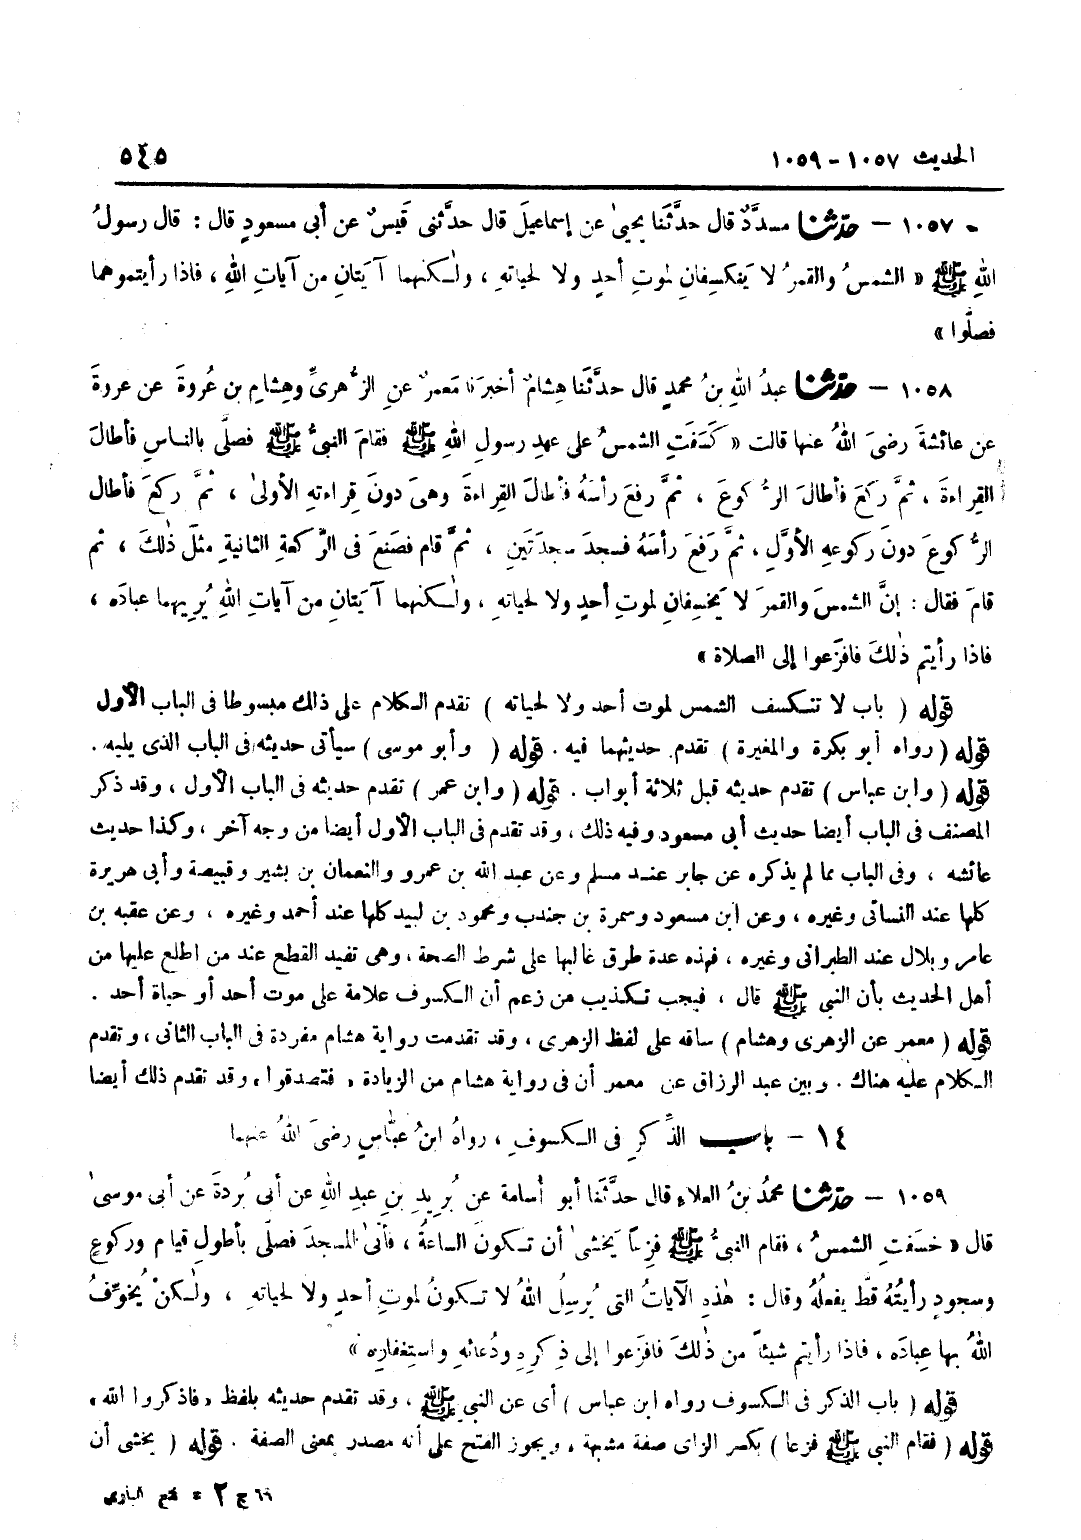 الحديث ١٠٥٧ - ١٠٥٩ ٥٤٥
١٠٥٧ - حدّثنا مسدَّدٌ قال حدَّثَنا يحيىٰ عن إسماعيلَ قال حدَّثنى قَيسٌ عن أبى مسعودٍ قال : قال رسولُ
اللهِ ﷺ « الشمسُ والقمرُ لا يَنكسِفانِ لموتِ أحدٍ ولا لحياتهِ ، ولٰكنهما آيَتانِ من آياتِ اللهِ ، فاذا رأيتموهما
فصلُّوا »
١٠٥٨ - حدّثنا عبدُ اللهِ بنُ محمدٍ قال حدَّثَنا هِشامٌ أخبرَنا مَعمرٌ عنِ الزُّهرىِّ وهِشامِ بن عُروةَ عن عروةَ
عن عائشةَ رضىَ اللهُ عنها قالت « كَسَفَتِ الشمسُ على عهدِ رسولِ اللهِ ﷺ فقامَ النبىُّ ﷺ فصلَّى بالناسِ فأطالَ
القِراءةَ ، ثمَّ ركَعَ فأطالَ الرُّكوعَ ، ثمَّ رفعَ رأسَهُ فأطالَ القِراءةَ وهىَ دونَ قِراءتهِ الأولىٰ ، ثمَّ ركعَ فأطال
الرُّكوعَ دونَ ركوعهِ الأوَّلِ ، ثمَّ رَفعَ رأسَهُ فسجدَ سجدَتَينِ ، ثمَّ قام فصَنعَ فى الرَّكعةِ الثانيةِ مثلَ ذٰلكَ ، ثم
قامَ فقال : إنَّ الشمسَ والقمرَ لا يَخسِفانِ لموتِ أحدٍ ولا لحياتهِ ، ولٰكنهما آيَتانِ من آياتِ اللهِ يُريهما عبادَه ،
فاذا رأيتم ذٰلكَ فافزَعوا إلى الصلاة »
قوله ( باب لا تنكسف الشمس لموت أحد ولا لحياته ) تقدم الكلام على ذلك مبسوطا فى الباب الأول
قوله ( رواه أبو بكرة والمغيرة ) تقدم حديثهما فيه . قوله ( وأبو موسى ) سيأتى حديثه فى الباب الذى يليه .
قوله ( وابن عباس ) تقدم حديثه قبل ثلاثة أبواب . قوله ( وابن عمر ) تقدم حديثه فى الباب الأول ، وقد ذكر
المصنف فى الباب أيضا حديث أبى مسعود وفيه ذلك ، وقد تقدم فى الباب الأول أيضا من وجه آخر ، وكذا حديث
عائشه ، وفى الباب مما لم يذكره عن جابر عند مسلم وعن عبد الله بن عمرو والنعمان بن بشير وقبيصة وأبى هريرة
كلها عند النسائى وغيره ، وعن ابن مسعود وسمرة بن جندب ومحمود بن لبيد كلها عند أحمد وغيره ، وعن عقبه بن
عامر وبلال عند الطبرانى وغيره ، فهذه عدة طرق غالبها على شرط الصحة ، وهى تفيد القطع عند من اطلع عليها من
أهل الحديث بأن النبي ﷺ قال ، فيجب تكذيب من زعم أن الكسوف علامة على موت أحد أو حياة أحد .
قوله ( معمر عن الزهرى وهشام ) ساقه على لفظ الزهرى ، وقد تقدمت رواية هشام مفردة فى الباب الثانى ، وتقدم
الكلام عليه هناك . وبين عبد الرزاق عن معمر أن فى رواية هشام من الزيادة « فتصدقوا » وقد تقدم ذلك أيضا
١٤ - باب الذِّكرِ فى الكسوفِ ، رواهُ ابنُ عبَّاسٍ رضىَ اللهُ عنهما
١٠٥٩ - حدّثنا محمدُ بنُ العلاءِ قال حدَّثَنا أبو أسامة عن بُرَيدِ بنِ عبدِ اللهِ عن أبى بُردةَ عن أبى موسىٰ
قال « خسَفَتِ الشمسُ ، فقام النبىُّ ﷺ فزِعاً يَخشىٰ أن تكونَ الساعةُ ، فأتىٰ المسجدَ فصلَّى بأطولِ قيامٍ وركوعٍ
وسجودٍ رأيتُهُ قطُّ يفعلُهُ وقال : هٰذهِ الآياتُ التى يُرسِلُ اللهُ لا تكونُ لموتِ أحدٍ ولا لحياتهِ ، ولٰكنْ يُخوِّفُ
اللهُ بها عِبادَه ، فاذا رأيتم شيئاً من ذٰلكَ فافزَعوا إلى ذِكرِهِ ودُعائهِ واستِغفارِه »
قوله ( باب الذكر فى الكسوف رواه ابن عباس ) أى عن النبي ﷺ ، وقد تقدم حديثه بلفظ « فاذكروا الله »
قوله ( فقام النبي ﷺ فزعا ) بكسر الزاى صفة مشبهة ، ويجوز الفتح على أنه مصدر بمعنى الصفة . قوله ( يخشى أن
٦٩ ج ٢ * فتح البارى